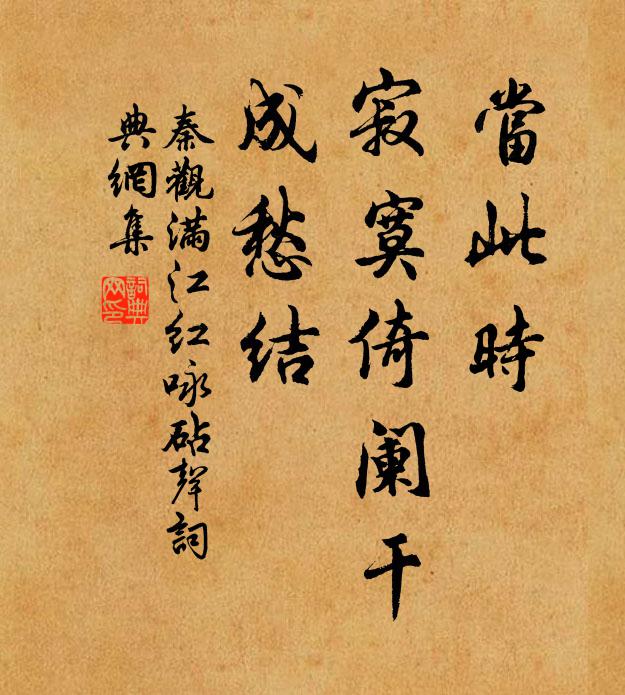 當此時
寂寞倚阑干
成愁結
秦觀滿江紅咏砧聲詞
典網集
詞典網印